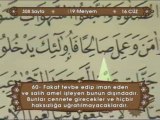 308.Sayfa 19 Meryem 16.CÜZ
اٰمَنَ وَعَمِلَ صَالِحًا فَاُولٰٓئِكَ يَدْخُلُو
60- Fakat tevbe edip iman eden
ve salih amel işleyen bunun dışındadır.
Bunlar cennete girecekler ve hiçbir
haksızlığa uğratılmayacaklardır